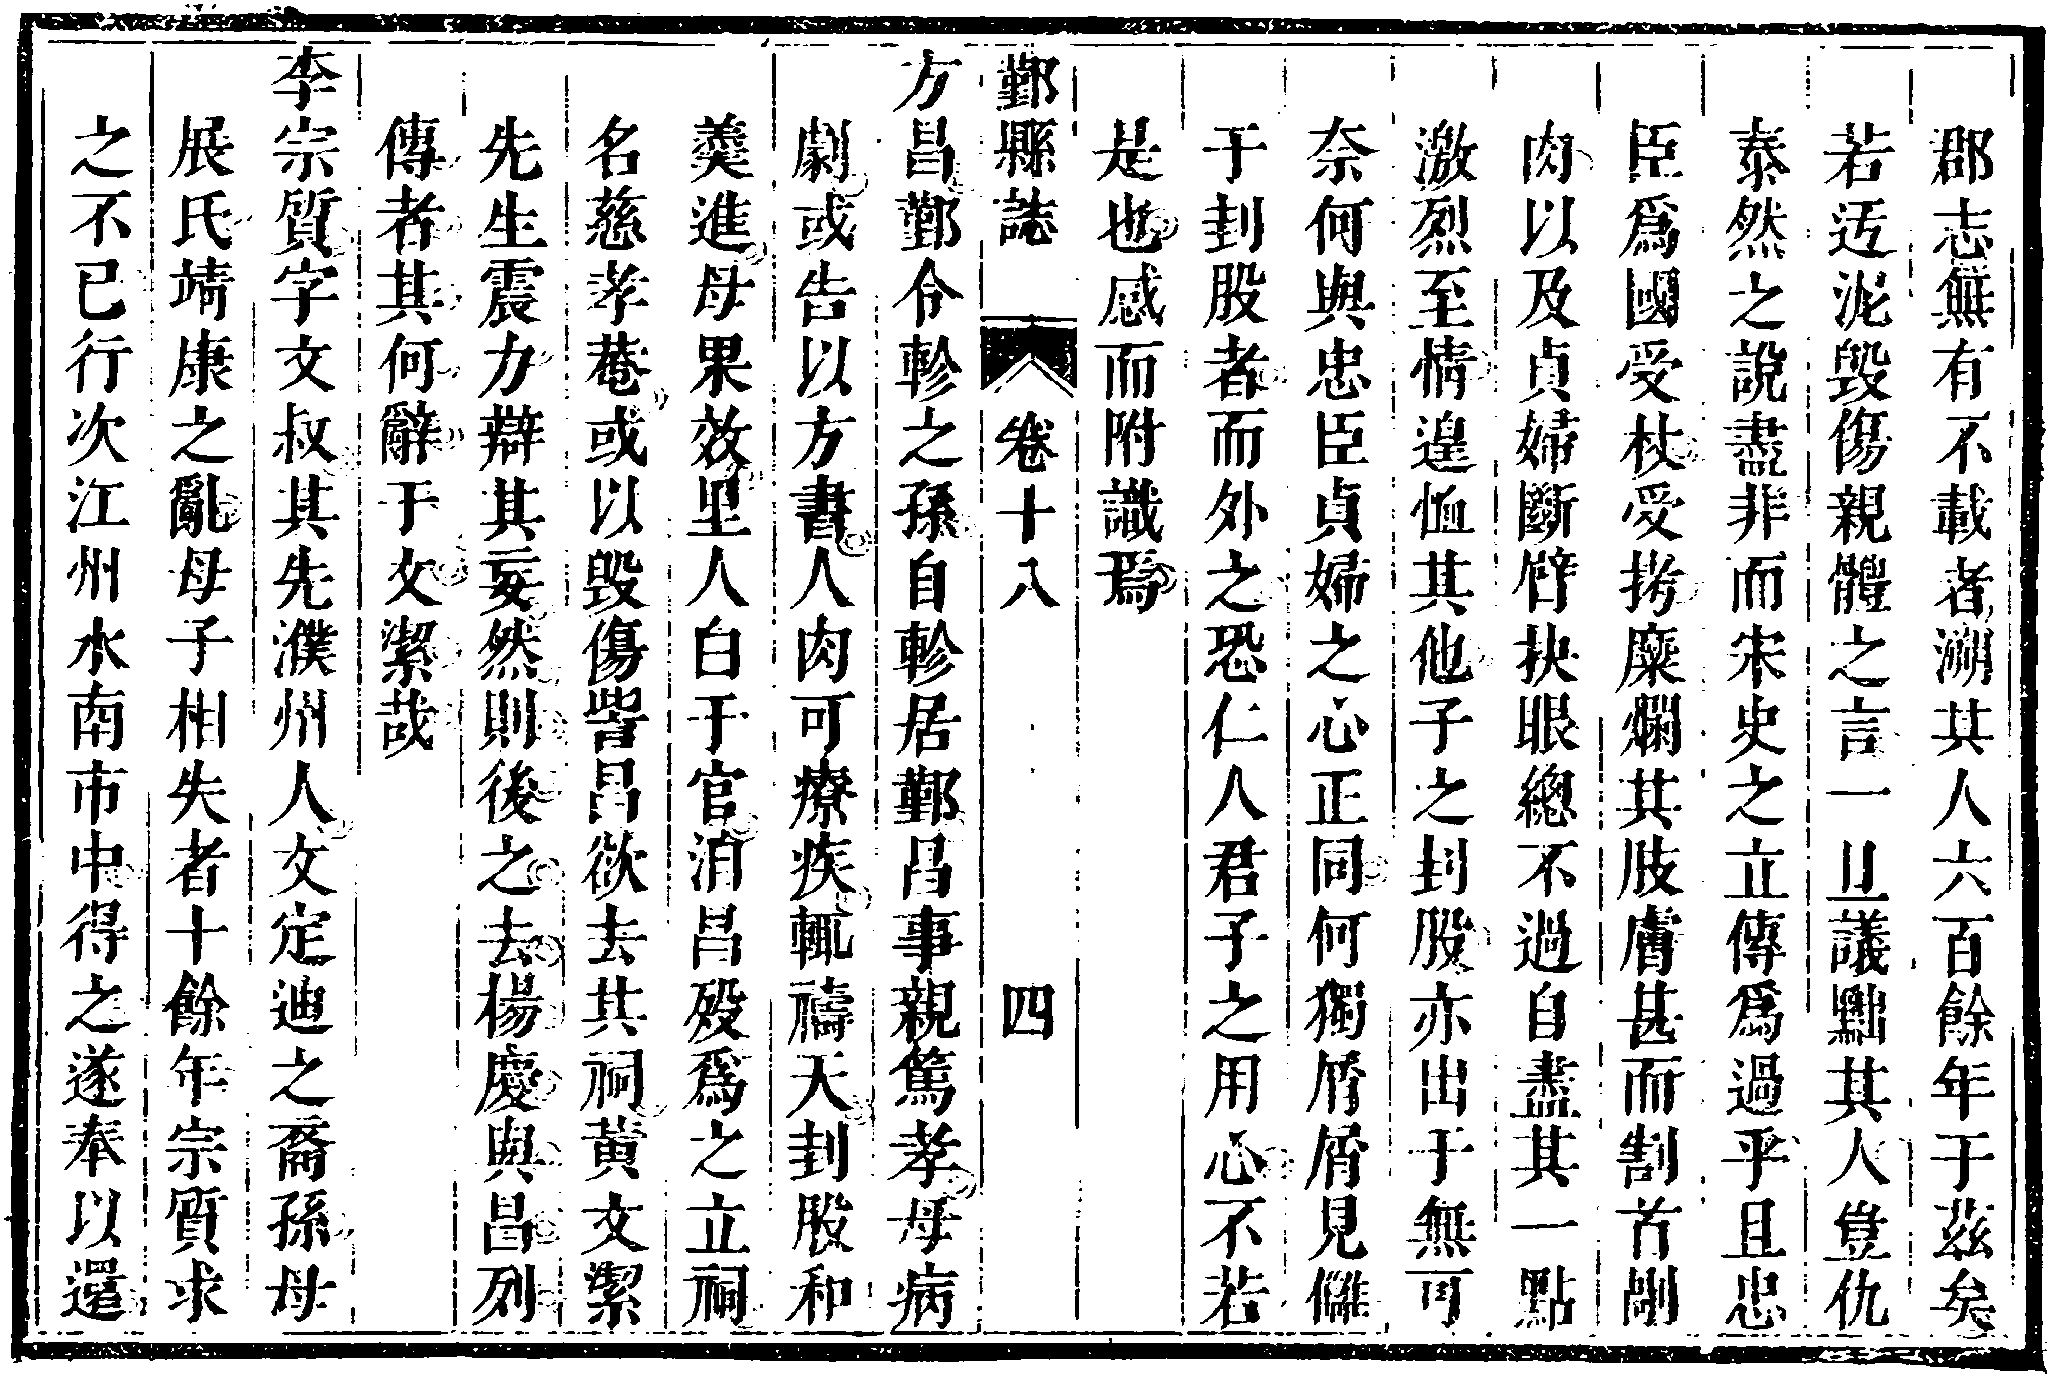 郡志無有不載者溯其人六百餘年于茲矣
若迂泥毀傷親體之言一旦議黜其人豈仇
泰然之說盡非而宋史之立傳爲過乎且忠
臣爲國受杖受拷糜爛其肢膚甚而割首剮
肉以及貞婦斷臂抉眼總不過自盡其一點
激烈至情遑恤其他子之刲股亦出于無可
奈何與忠臣貞婦之心正同何獨屑屑見讎
于刲股者而外之恐仁人君子之用心不若
是也感而附識焉
鄞縣誌 卷十八 四
方昌鄞令軫之孫自軫居鄞昌事親篤孝母病
劇或告以方書人肉可療疾輒禱天刲股和
羹進母果效里人白于官消昌殁爲之立祠
名慈孝菴或以毀傷訾昌欲去其祠黃文潔
先生震力辯其妄然則後之去楊慶與昌列
傳者其何辭于文潔哉
李宗質字文叔其先濮州人文定迪之裔孫母
展氏靖康之亂母子相失者十餘年宗質求
之不已行次江州水南市中得之遂奉以還